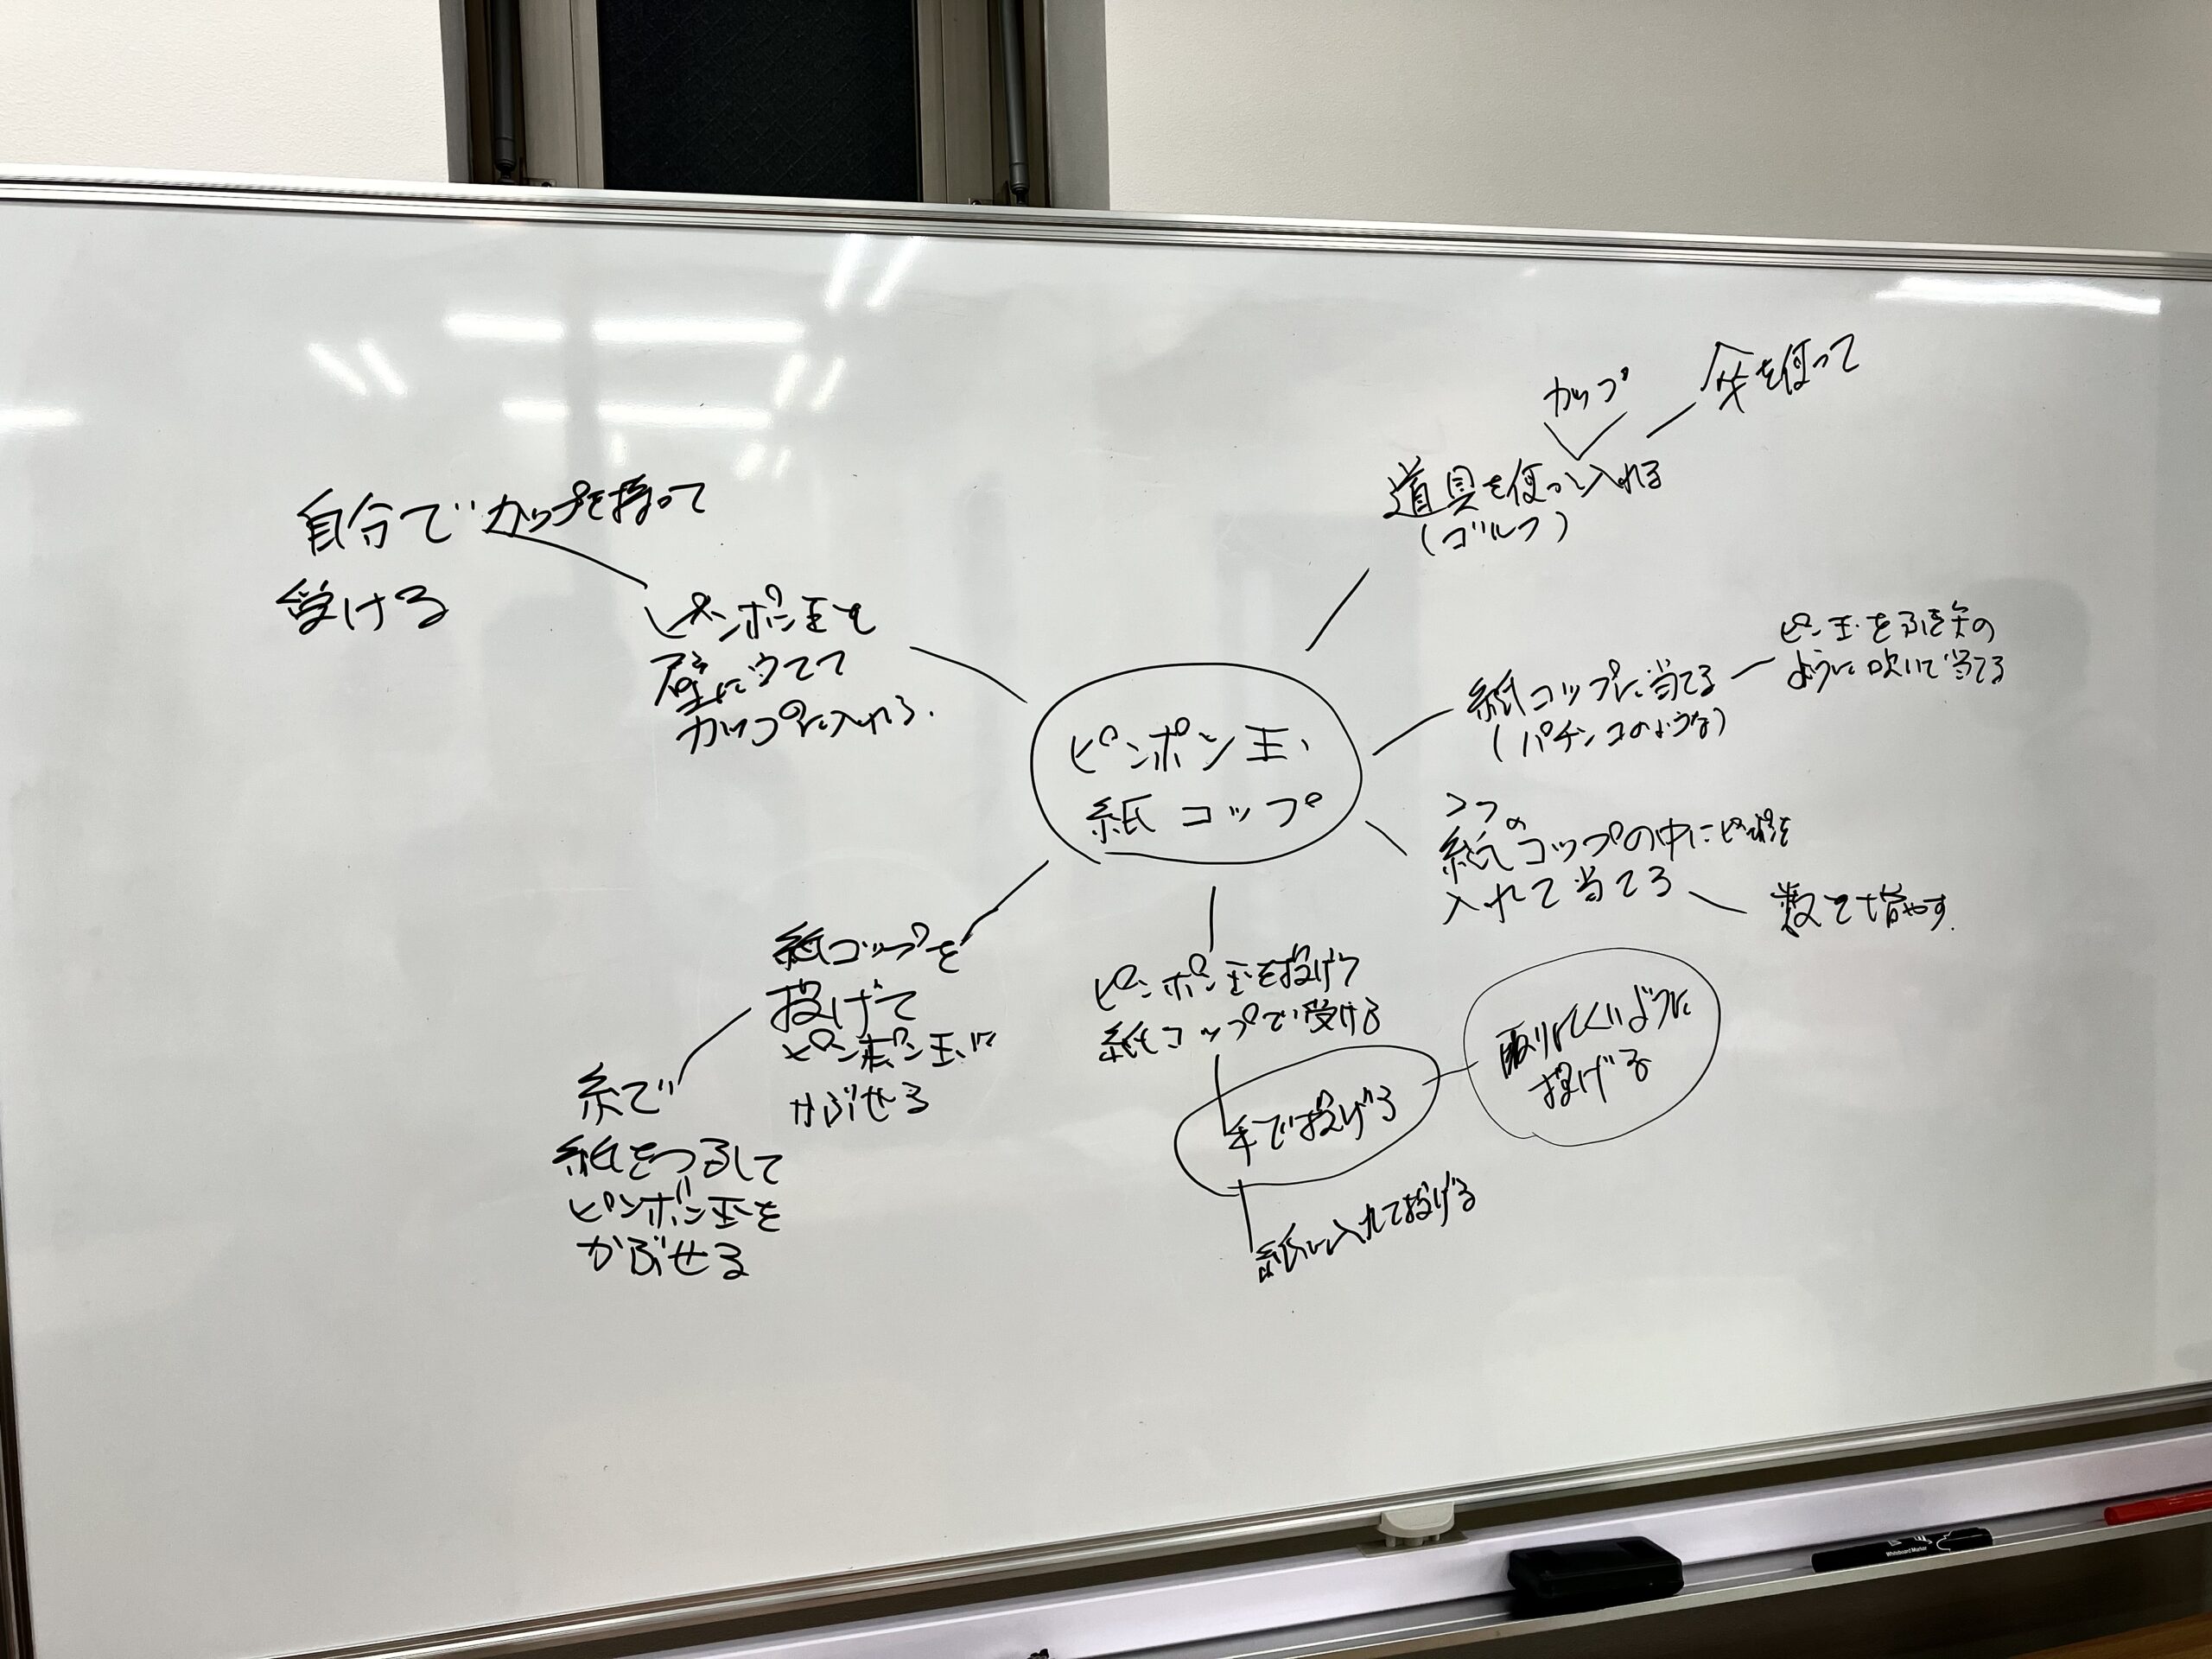 カップ
傘を使って
道具を使って入れる
(ゴルフ)
自分でカップを持って
受ける
ピンポン玉を
壁に当てて
カップに入れる.
ピンポン玉、
紙コップ
紙コップに当てる
(パチンコのような)
ピン玉をふき矢の
ように吹いて当てる
の
紙コップの中にピンポン玉を
入れて当てる
数を増やす.
紙コップを
投げて
ピンポン玉に
かぶせる
糸で
紙をつるして
ピンポン玉を
かぶせる
ピンポン玉を投げて
紙コップで受ける
手で投げる
取りにくいように
投げる
紙に入れて投げる
Whiteboard Marker